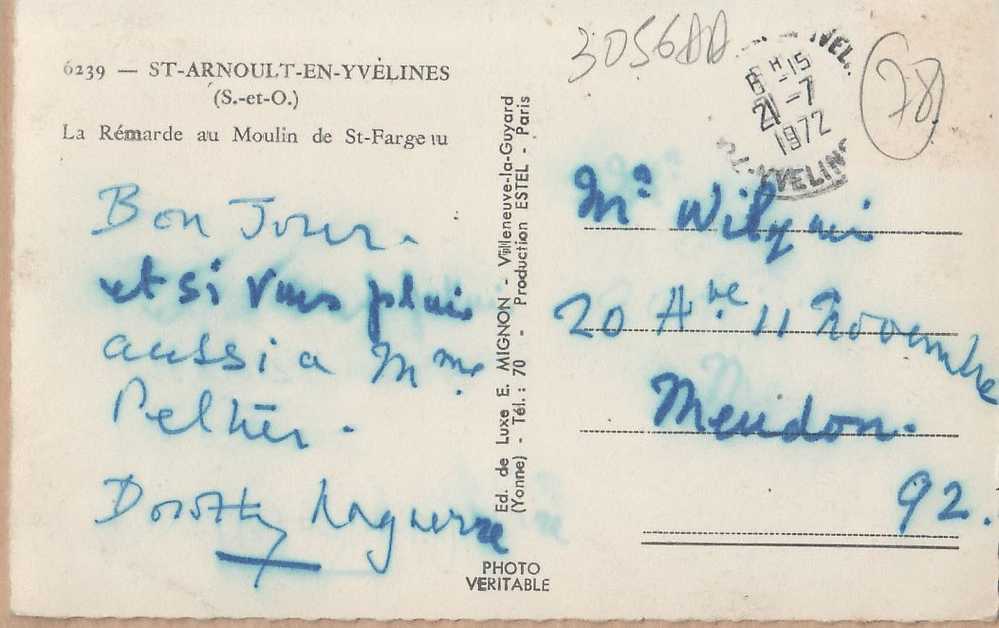 6239 — ST-ARNOULT-EN-YVELINES
(S.-et-O.)
La Rémarde au Moulin de St-Fargeau
Bon Jour.
et si vous plais
aussi a Mme
Peltier.
Dorothy Laguerre
Ed. de Luxe E. MIGNON - Villeneuve-la-Guyard
(Yonne) - Tél. : 70 - Production ESTEL - Paris
PHOTO
VERITABLE
3056AA
78
YVEL.
H -15
21 -7
1972
YVELINES
Mr
20 Ave 11 Novembre
Meudon.
92.